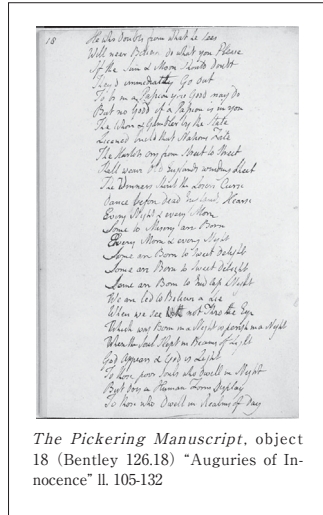 18
He who Doubts from what he sees
Will neer Believe do what you Please
If the Sun & Moon should doubt
Theyd immediately Go out
To be in a Passion you Good may do
But no Good if a Passion is in you
The Whore & Gambler by the State
Licencd build that Nations Fate
The Harlots cry from Street to Street
Shall weave Old Englands winding Sheet
The Winners Shout the Losers Curse
Dance before dead Englands Hearse
Every Night & every Morn
Some to Misery are Born
Every Morn & every Night
Some are Born to Sweet delight
Some are Born to Sweet delight
Some are Born to Endless Night
We are led to Believe a Lie
When we see not Thro the Eye
Which was Born in a Night to perish in a Night
When the Soul Slept in Beams of Light
God Appears & God is Light
To those poor Souls who dwell in Night
But does a Human Form Display
To those who Dwell in Realms of day
The Pickering Manuscript, object
18 (Bentley 126.18) “Auguries of In-
nocence” ll. 105-132